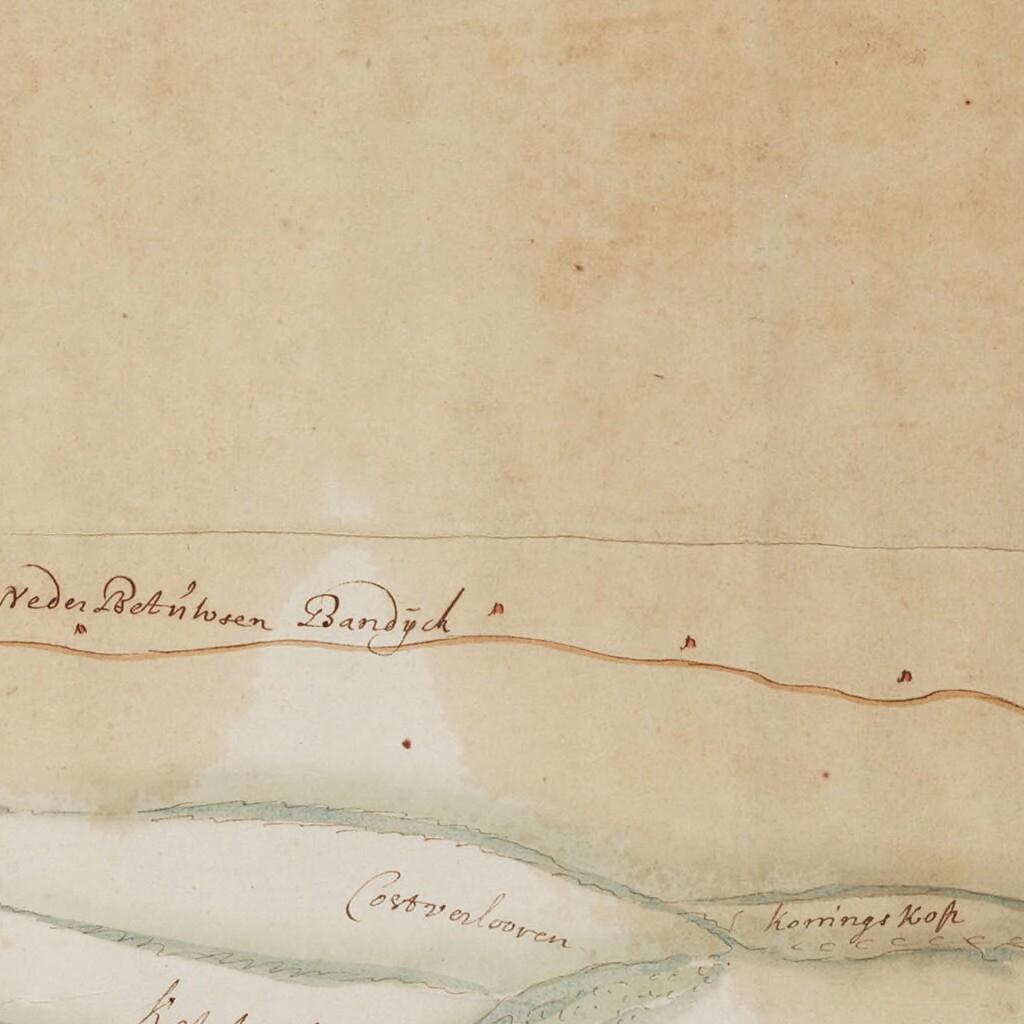 Neder Betuwsen Bandÿck
Costverlooren
Konings Kop